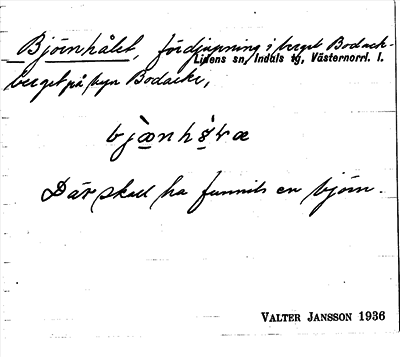 Björnhålet, fördjupning i berget Bodack-
Lidens sn, Indals tg, Västernorrl. l.
berget på byn Bodacke,
bjæ̀nhɔ̣̀ɽæ
Där skall ha funnits en björn.
VALTER JANSSON 1936